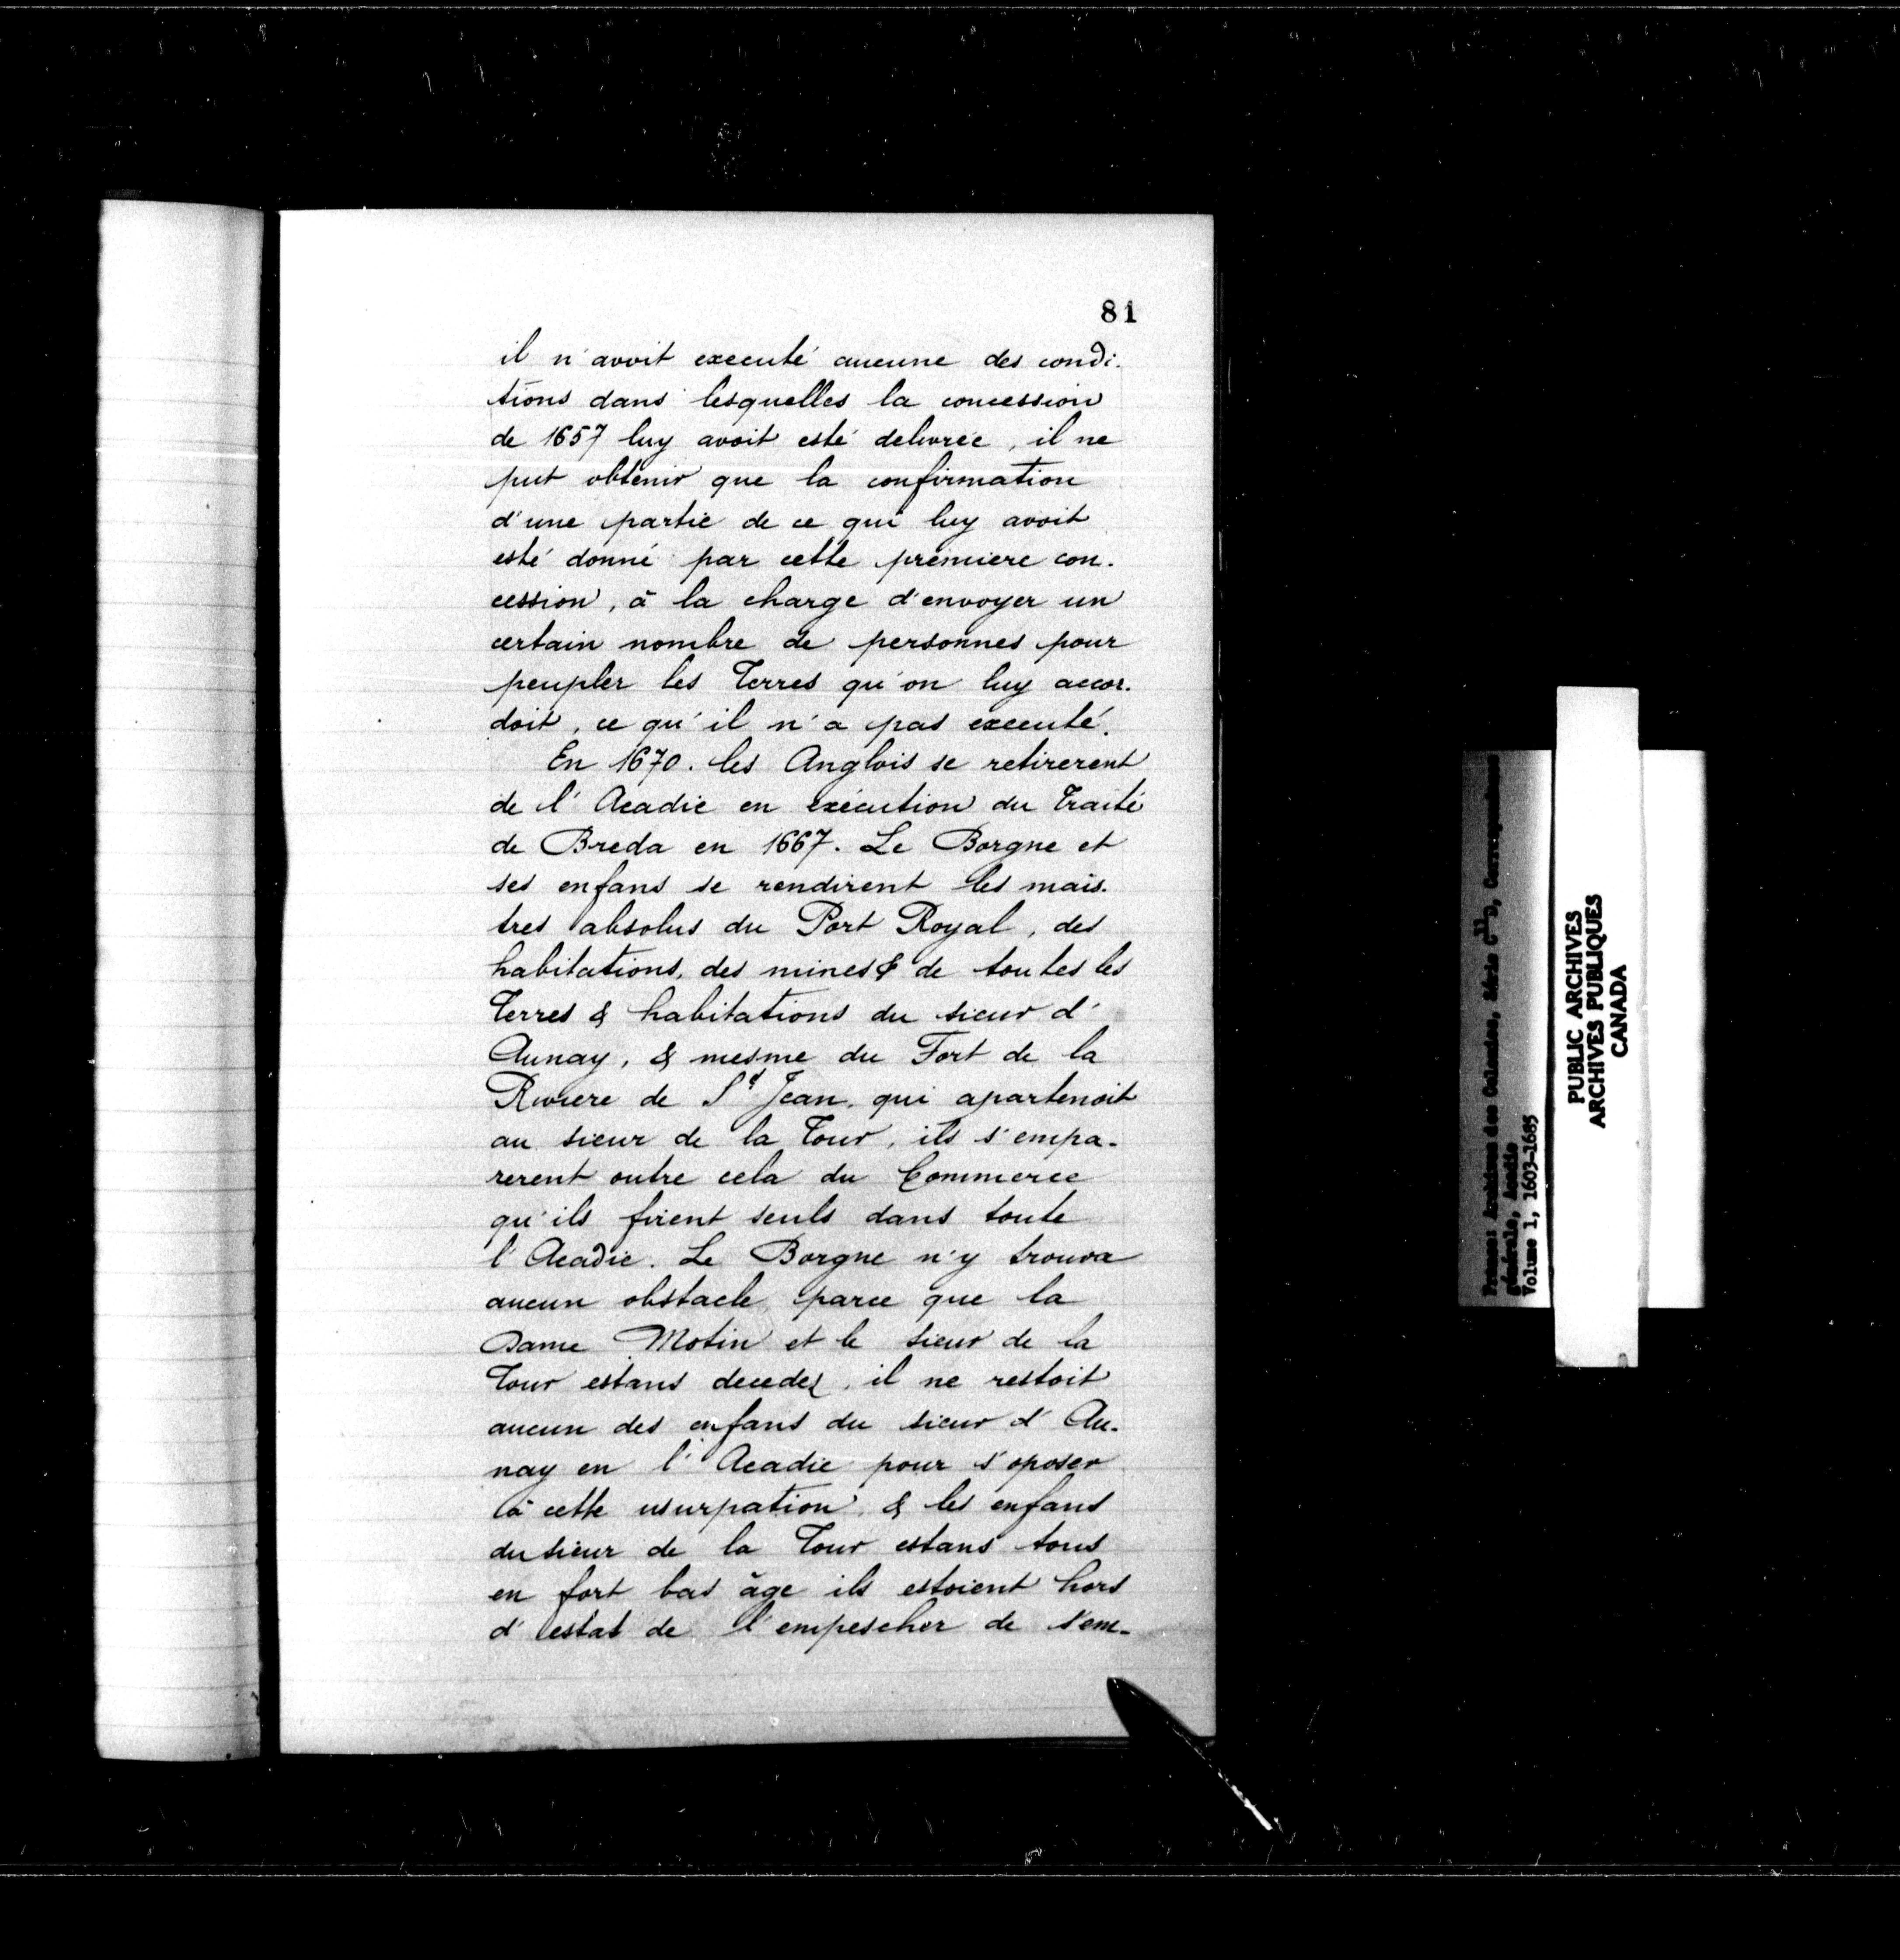 81
il n'avoit executé aucune des condi-
tions dans lesquelles la concession
de 1657 luy avoit esté delivrée, il ne
put obtenir que la confirmation
d'une partie de ce qui luy avoit
esté donné par cette premiere con-
cession, à la charge d'envoyer un
certain nombre de personnes pour
peupler les Terres qu'on luy accor-
doit, ce qu'il n'a pas executé.
En 1670. les Anglois se retirerent
de l'Acadie en exécution du Traité
de Breda en 1667. Le Borgne et
ses enfans se rendirent les mais-
tres absolus du Port Royal, des
habitations, des mines & de toutes les
Terres & habitations du sieur d'
Aunay, & mesme du Fort de la
Riviere de St Jean, qui apartenoit
au sieur de la Tour, ils s'empa-
rerent outre cela du Commerce
qu'ils firent seuls dans toute
l'Acadie. Le Borgne n'y trouva
aucun obstacle parce que la
Dame Motin et le sieur de la
Tour estans decedez, il ne restoit
aucun des enfans du sieur d'Au-
nay en l'Acadie pour s'oposer
à cette usurpation, & les enfans
du sieur de la Tour estans tous
en fort bas âge ils estoient hors
d'estat de l'empescher de s'em-
France: Archives des Colonies, Série C11D, Correspondance
générale, Acadie
Volume 1, 1603-1685
PUBLIC ARCHIVES
ARCHIVES PUBLIQUES
CANADA